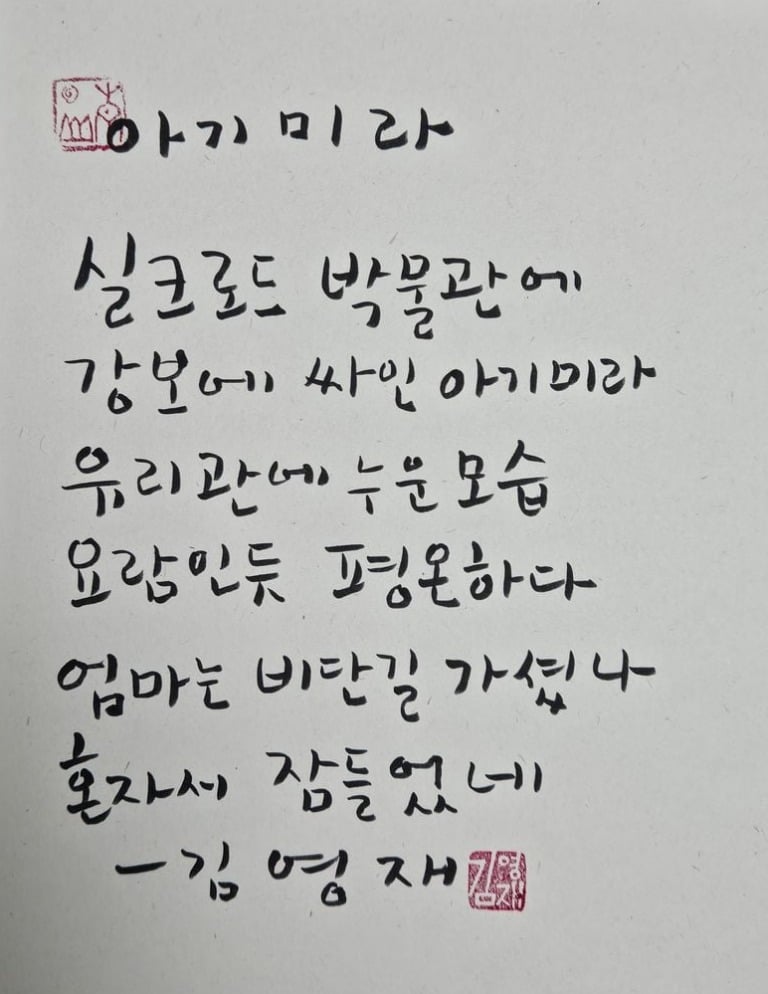 아기 미라
실크로드 박물관에
강보에 싸인 아기미라
유리관에 누운 모습
요람인듯 평온하다
엄마는 비단길 가셨나
혼자세 잠들었네
-김영재
김영재